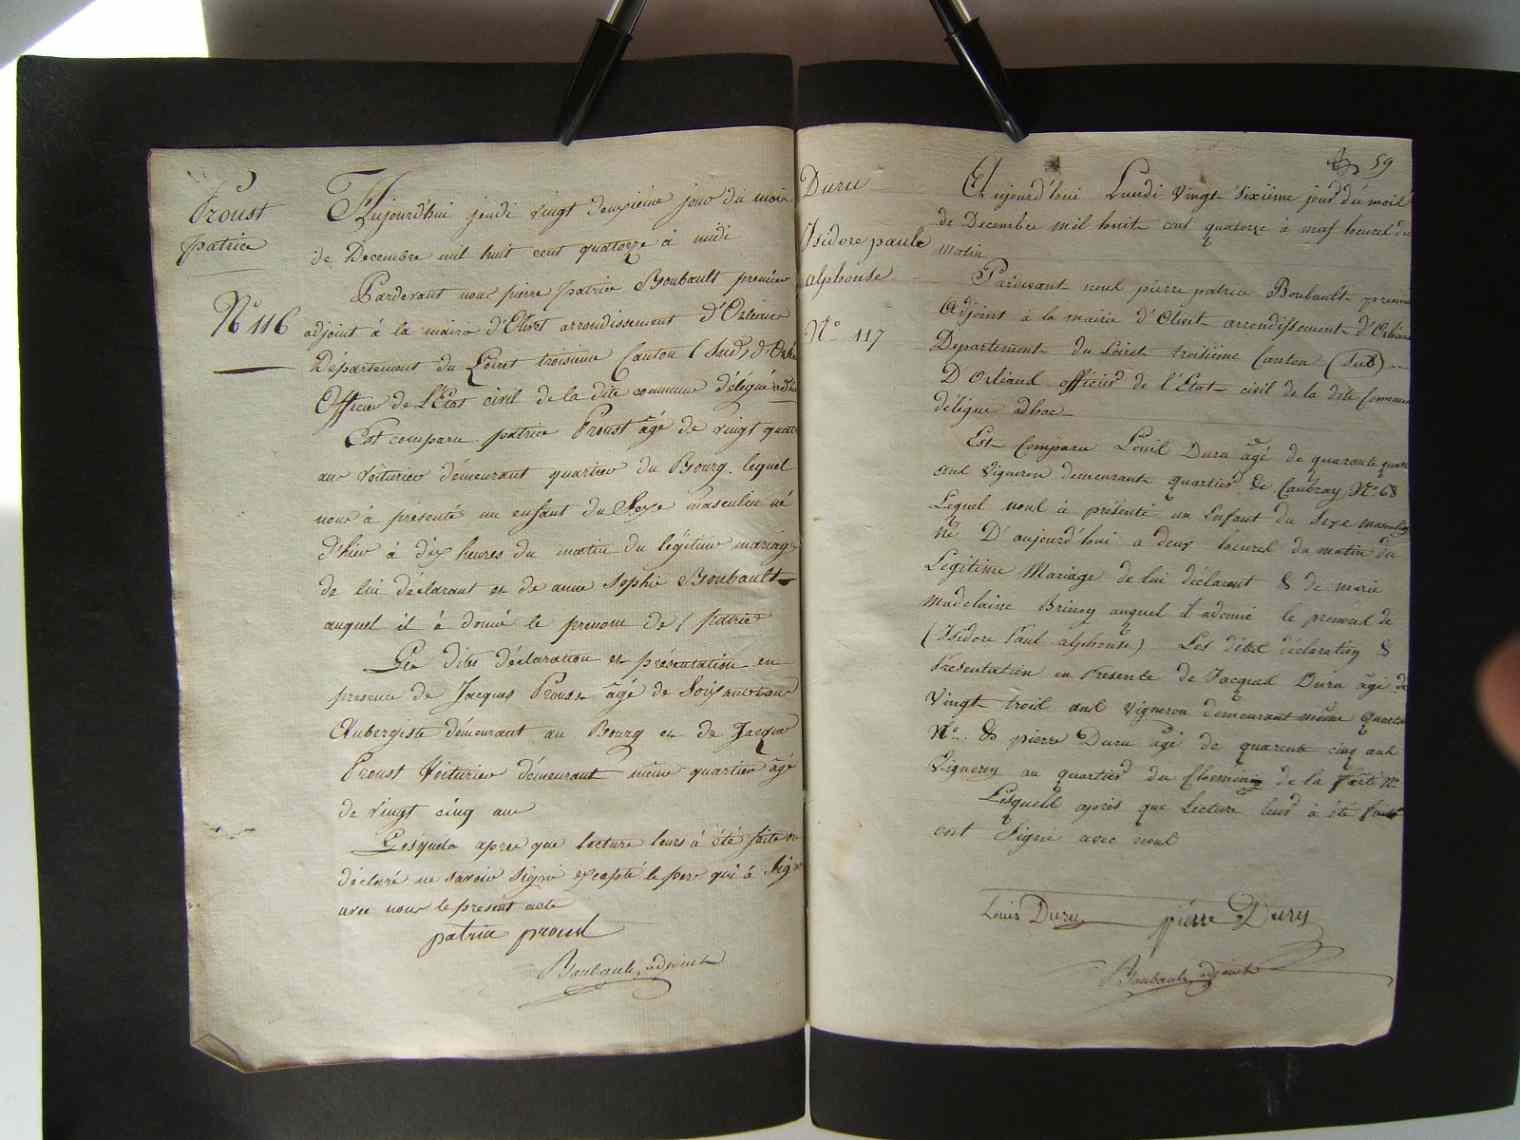 Proust
patrice
N° 116
Aujourd'hui jeudi vingt deuxième jour du mois
de Decembre mil huit cent quatorze à midi
Pardevant nous pierre patrice Boubault premier
adjoint à la mairie d'Olivet arrondissement d'Orleans
Département du Loiret troisieme Canton (Sud) d'Orleans
Officier de l'Etat civil de la dite commune délégué adhoc
Est comparu patrice Proust âgé de vingt quatre
ans Voiturier démeurant quartier du Bourg lequel
nous à presenté un enfant du Sexe masculin né
d'hier à dix heures du matin du légitime mariage
de lui déclarant et de anne Sophie Boubault
auquel il à donné le prenom de (patrice
Les dites déclaration et présentation en
presence de Jacques Proust âgé de Soixante ans
Aubergiste démeurant au Bourg et de Jacques
Proust Voiturier démeurant même quartier âgé
de vingt cinq ans
Lesquels après que lecture leurs à été faite ont
déclaré ne savoir signer excepté le pere qui à Signé
avec nous le present acte
patrice proust
Boubault, adjoint
59
Duru
Isidore paule
alphonse
N° 117
Aujourd'hui Lundi Vingt Sixiême jour du mois
de Decembre mil huit cent quatorze à neuf heures du
matin
Pardevant nous pierre patrice Boubault premier
Adjoint à la mairie d'Olivet arrondissement d'Orléans
Departement du Loiret troisiême Canton (Sud)
D'Orléans officier de l'Etat civil de la dite Commune
délégué adhoc
Est Comparu Louis Duru âgé de quarante quatre
ans Vigneron demeurant quartier de Caubray N° 68
Lequel nous à présenté un Enfant du Sexe masculin
né D'aujourd'hui a deux heures du matin du
Legitime Mariage de lui déclarant & de marie
Madelaine Brincy auquel il adonné le prenoms de
(Isidore Paul alphonse) Les dites déclaration &
Présentation en Présence de Jacques Duru âgé de
Vingt trois ans Vigneron demeurant même quartier
N° & pierre Duru âgé de quarente cinq ans
Vigneron au quartier du Chemin de la Ferté N°
Lesquels après que Lecture leur à été faite
ont Signé avec nous
Louis Duru pierre Duru
Boubault, adjoint